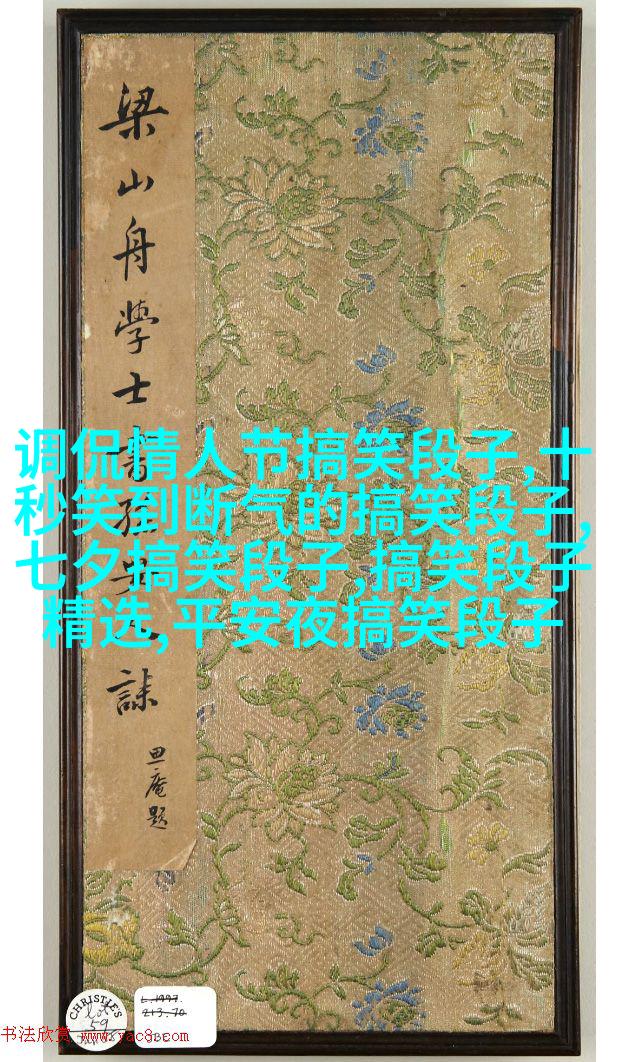 梁山舟學士書
庵題
调侃情人节搞笑段子,十
秒笑到断气的搞笑段子,
七夕搞笑段子,搞笑段子
精选,平安夜搞笑段子
CHRISTIE'S
lot
59
L.1997.
213.70
书法欣赏 www.yac8.com